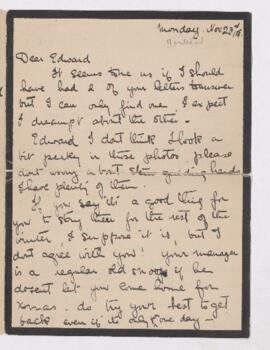 Monday. Nov 23rd
Dear Edward
It seems to me as if I should
have had 2 of your letters to answer
but I can only find one, I expect
I dreampt about the other –
Edward I don't think I look a
bit peeky in those photos, please
don't worry about
I have plenty of them.
If you say it's a good thing for
you to stay there for the rest of the
winter, I suppose it is, but I
don't agree with you! Your manager
is a regular old if he
doesnt let you come home for
Xmas. do try your best to get
back even if its only one day –